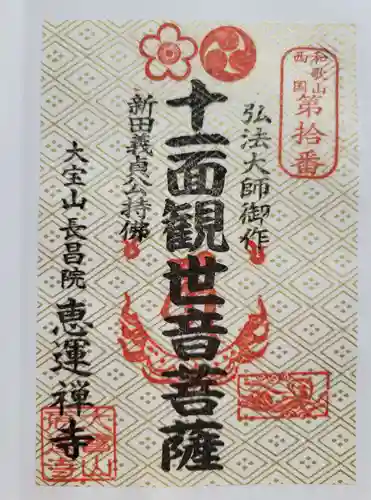 和歌山
西国
第拾番
弘法大師御作
十一面観世音菩薩
新田義貞公持佛
大宝山長昌院恵運禅寺